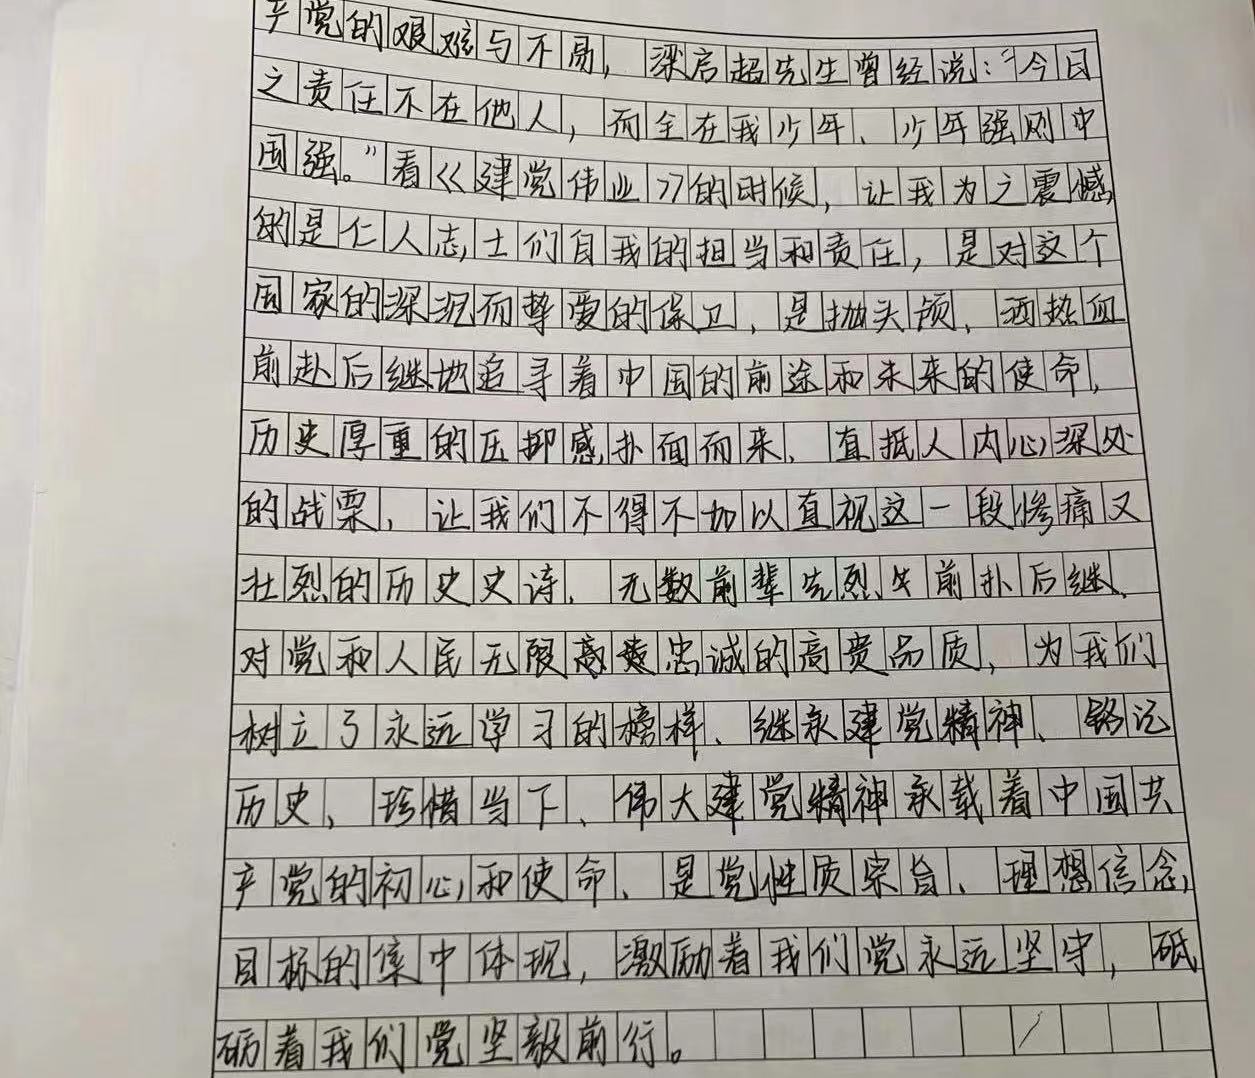 产党的艰难与不易，梁启超先生曾经说：“今日
之责任不在他人，而全在我少年、少年强则中
国强。”看《建党伟业》的时候，让我为之震憾
的是仁人志士们自我的担当和责任，是对这个
国家的深沉而挚爱的保卫，是抛头颅，洒热血
前赴后继地追寻着中国的前途和未来的使命，
历史厚重的压抑感扑面而来、直抵人内心深处
的战栗，让我们不得不加以直视这一段惨痛又
壮烈的历史史诗．无数前辈先烈，前扑后继、
对党和人民无限高忠诚的高贵品质，为我们
树立了永远学习的榜样、继承建党精神、铭记
历史、珍惜当下、伟大建党精神承载着中国共
产党的初心和使命、是党性质宗旨、理想信念，
目标的集中体现，激励着我们党永远坚守，砥
砺着我们党坚毅前行。